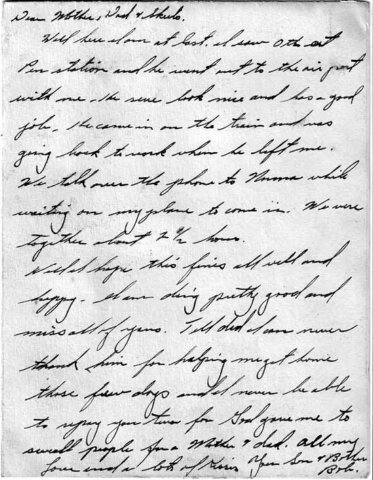 Dear Mother, Dad &
Well here I am at last. I saw Otho at
Pen station and he went out to the air port
with me. He sure look nice and has a good
job. He came in on the train and was
going back to work when he left me.
We talk over the phone to Norma while
waiting on my plane to come in. We were
together about 2 1/2 hours.
Well I hope this fines all well and
happy. I am doing pretty good and
miss all of you. Tell dad I can never
thank him for helping me get home
those few days and I never be able
to repay you two for God gave me to
swell people for a Mother & dad. All my
Love and a lots of Kisses Your Son & Brother
Bob.